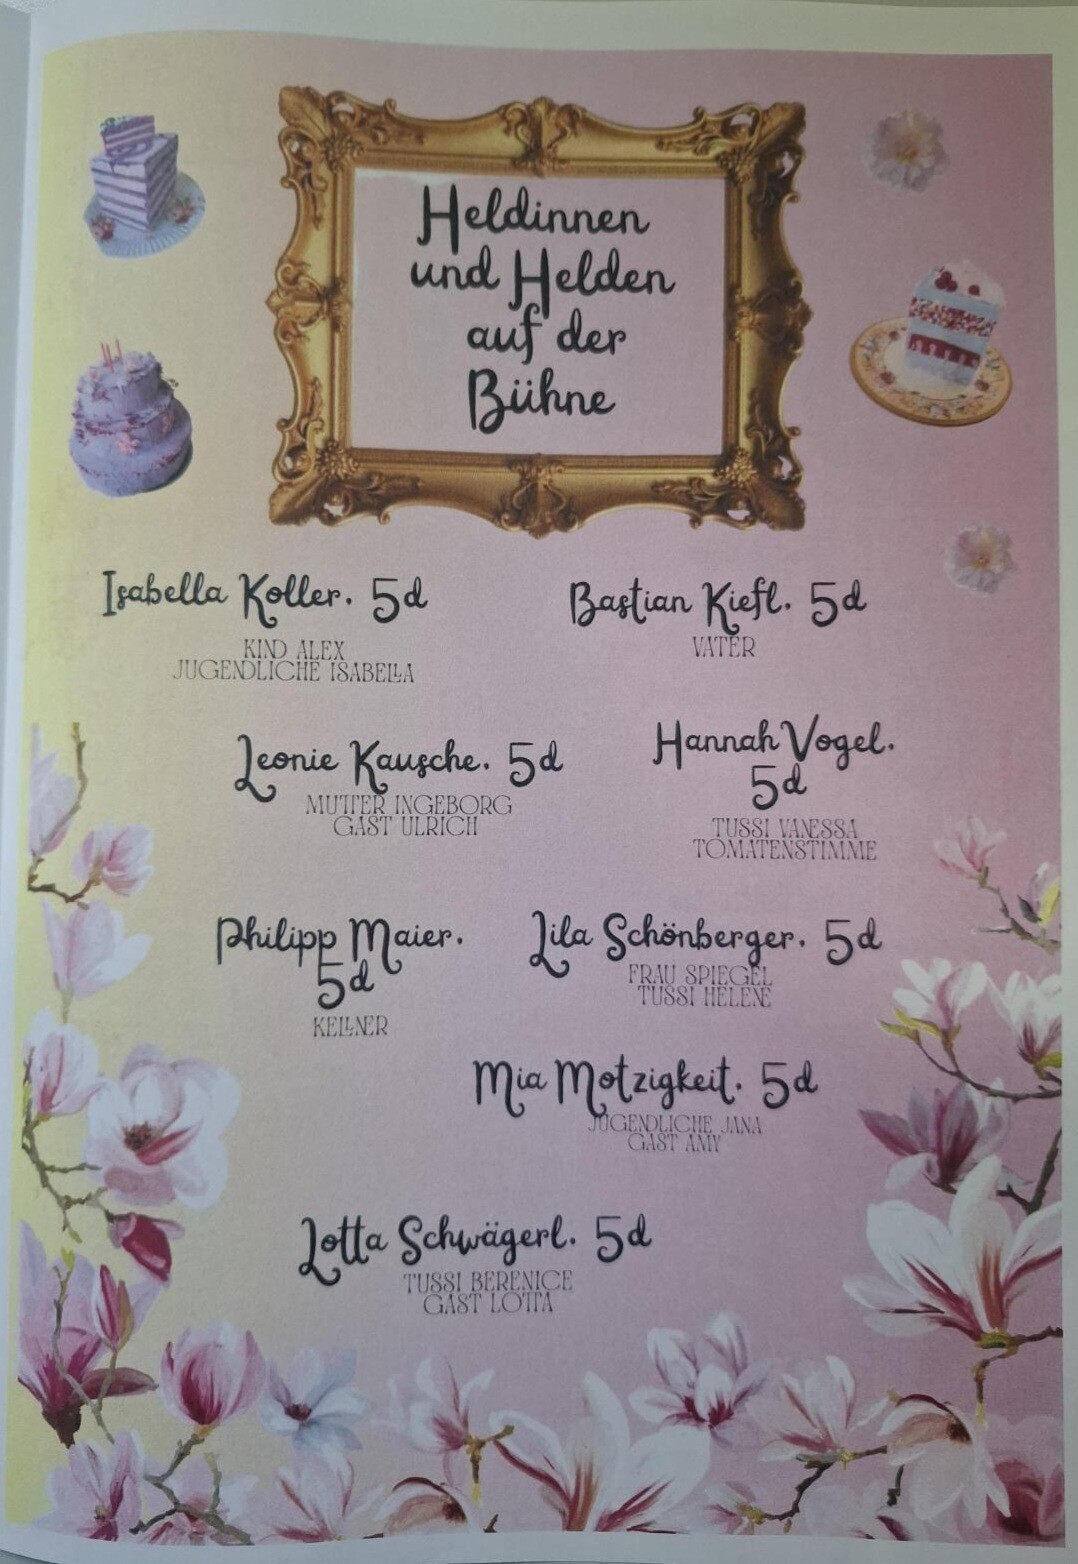 Heldinnen
und Helden
auf der
Bühne
Isabella Koller, 5d
KIND ALEX
JUGENDLICHE ISABELLA
Bastian Kiefl, 5d
VATER
Leonie Kausche, 5d
MUTTER INGEBORG
GAST ULRICH
Hannah Vogel,
5d
TUSSI VANESSA
TOMATENSTIMME
Philipp Maier,
5d
KELLNER
Lila Schönberger, 5d
FRAU SPIEGEL
TUSSI HELENE
Mia Motzigkeit, 5d
JUGENDLICHE JANA
GAST AMY
Lotta Schwägerl, 5d
TUSSI BERENICE
GAST LOTTA